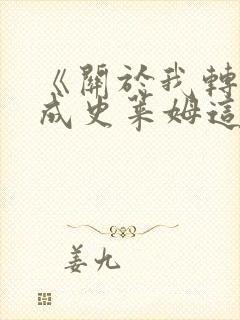 《關於我轉
成史萊姆這
姜九